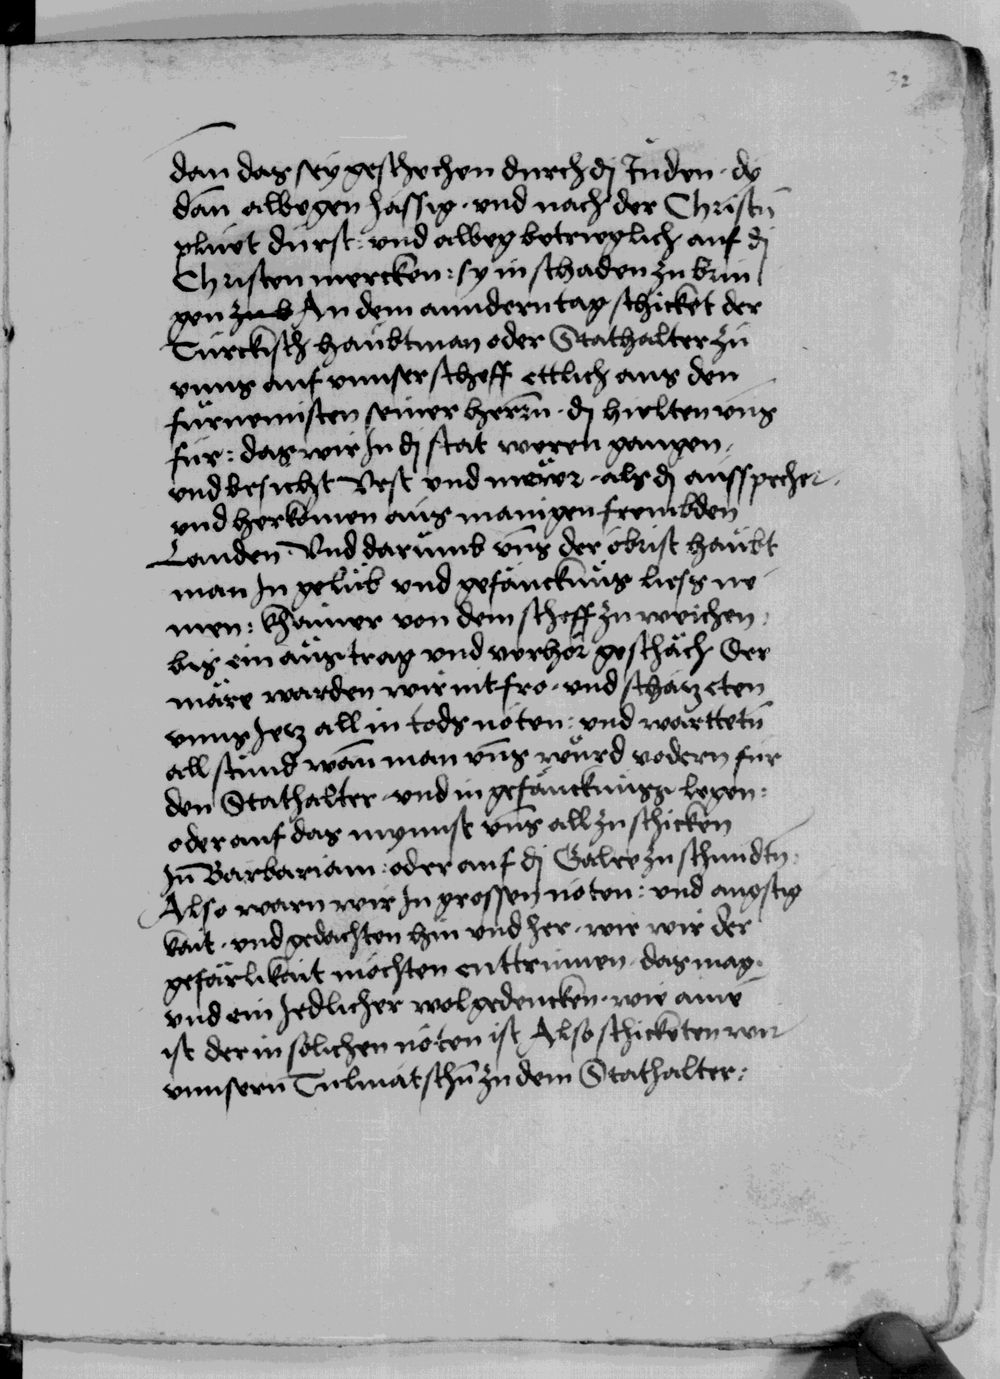 32
dan das sey geschechen durch dj Juden · dy
dan albegen hässig · vnd nach der Christn̄
pluet durst : vnd albeg betrieglich auf dj
Christen mercken : sy in schaden zu brin
gen zub An dem anndern tag schicket der
Türckisch haubtman oder Stathalter zu
vnns auf vnnser scheff ettlich aus den
fürnemisten seiner herrn · dj hielten vn̄s
für : das wir Jn dj stat weren gangen ·
vnd besicht Vest vnd meẅer · als dj ausspecher ·
vnd herkomen aus manigen frembden
Landen · Vnd darumb vn̄s der obrist haubt
man Jn gelüb vnd gefäncknus liess ne
men : khainer von dem scheff zu weichen :
bis ein austrag vnd verhör geschäch Der
märe warden wir nit fro · vnd schäczeten
vnns Jecz all in tods nöten : vnd wartteten̄
all stund wan̄ man vn̄s würd vodern für
den Stathalter · vnd in gefäncknuss legen :
oder auf das mynnst vn̄s all zu schicken
Jn̄ Barbariam : oder auf dj Galee zu schmidn̄ :
Also warn wir Jn grossen nöten : vnd angstig
kait · vnd gedachten hin vnd her · wie wir der
gefärlikait möchten enttrinnen · das mag ·
vnd ein Jedlicher wol gedencken · wie aine
ist der in solichen nöten ist Also schicketen wir
vnnsern Tulmatschn̄ zu dem Stathalter :